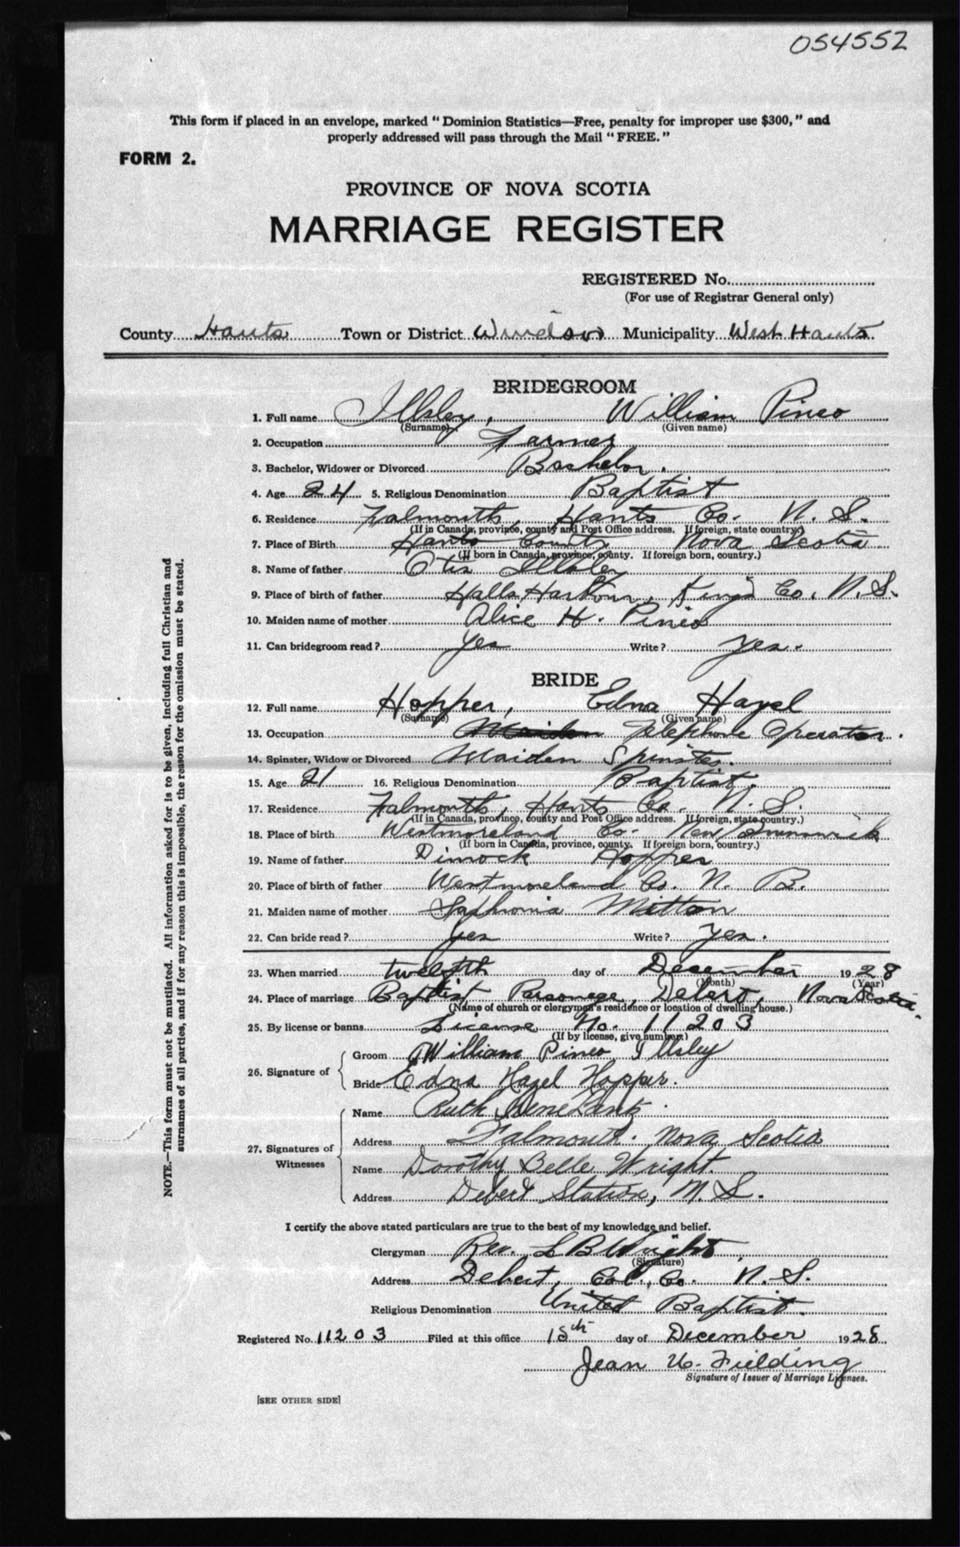 054552
This form if placed in an envelope, marked “Dominion Statistics—Free, penalty for improper use $300,” and
properly addressed will pass through the Mail “FREE.”
FORM 2.
PROVINCE OF NOVA SCOTIA
MARRIAGE REGISTER
REGISTERED No.
(For use of Registrar General only)
County Hants Town or District Windsor Municipality West Hants
BRIDEGROOM
1. Full name Illsley, William Pineo
(Surname) (Given name)
2. Occupation Farmer
3. Bachelor, Widower or Divorced Bachelor.
4. Age 24 5. Religious Denomination Baptist
6. Residence Falmouth, Hants Co. N. S.
(If in Canada, province, county and Post Office address. If foreign, state country.)
7. Place of Birth Hants County Nova Scotia
(If born in Canada, province, county. If foreign born, country.)
8. Name of father Otis Illsley
9. Place of birth of father Halls Harbour, King's Co. N.S.
10. Maiden name of mother Alice H. Pineo
11. Can bridegroom read? Yes Write? Yes.
BRIDE
12. Full name Hopper, Edna Hazel
(Surname) (Given name)
13. Occupation Maiden Telephone Operator.
14. Spinster, Widow or Divorced Maiden Spinster.
15. Age 21 16. Religious Denomination Baptist.
17. Residence Falmouth, Hants Co. N. S.
(If in Canada, province, county and Post Office address. If foreign, state country.)
18. Place of birth Westmoreland Co. New Brunswick
(If born in Canada, province, county. If foreign born, country.)
19. Name of father Dimock Hopper
20. Place of birth of father Westmoreland Co. N. B.
21. Maiden name of mother Saphronia Mitton
22. Can bride read? Yes Write? Yes.
23. When married twelfth day of December 1928
(Month) (Year)
24. Place of marriage Baptist Parsonage, Debert, Nova Scotia.
(Name of church or clergyman's residence or location of dwelling house.)
25. By license or banns License No. 11203
(If by license, give number)
26. Signature of Groom William Pineo Illsley
Bride Edna Hazel Hopper.
27. Signatures of Witnesses
Name Ruth Irene Lantz.
Address Falmouth. Nova Scotia
Name Dorothy Belle Wright.
Address Debert Station, N. S.
I certify the above stated particulars are true to the best of my knowledge and belief.
Clergyman Rev. L B Wright
(Signature)
Address Debert, Col. Co. N. S.
Religious Denomination United Baptist.
Registered No. 11203 Filed at this office 15th day of December 1928
Jean W. Fielding
Signature of Issuer of Marriage Licenses.
[SEE OTHER SIDE]
NOTE.—This form must not be mutilated. All information asked for is to be given, including full Christian and
surnames of all parties, and if for any reason this is impossible, the reason for the omission must be stated.